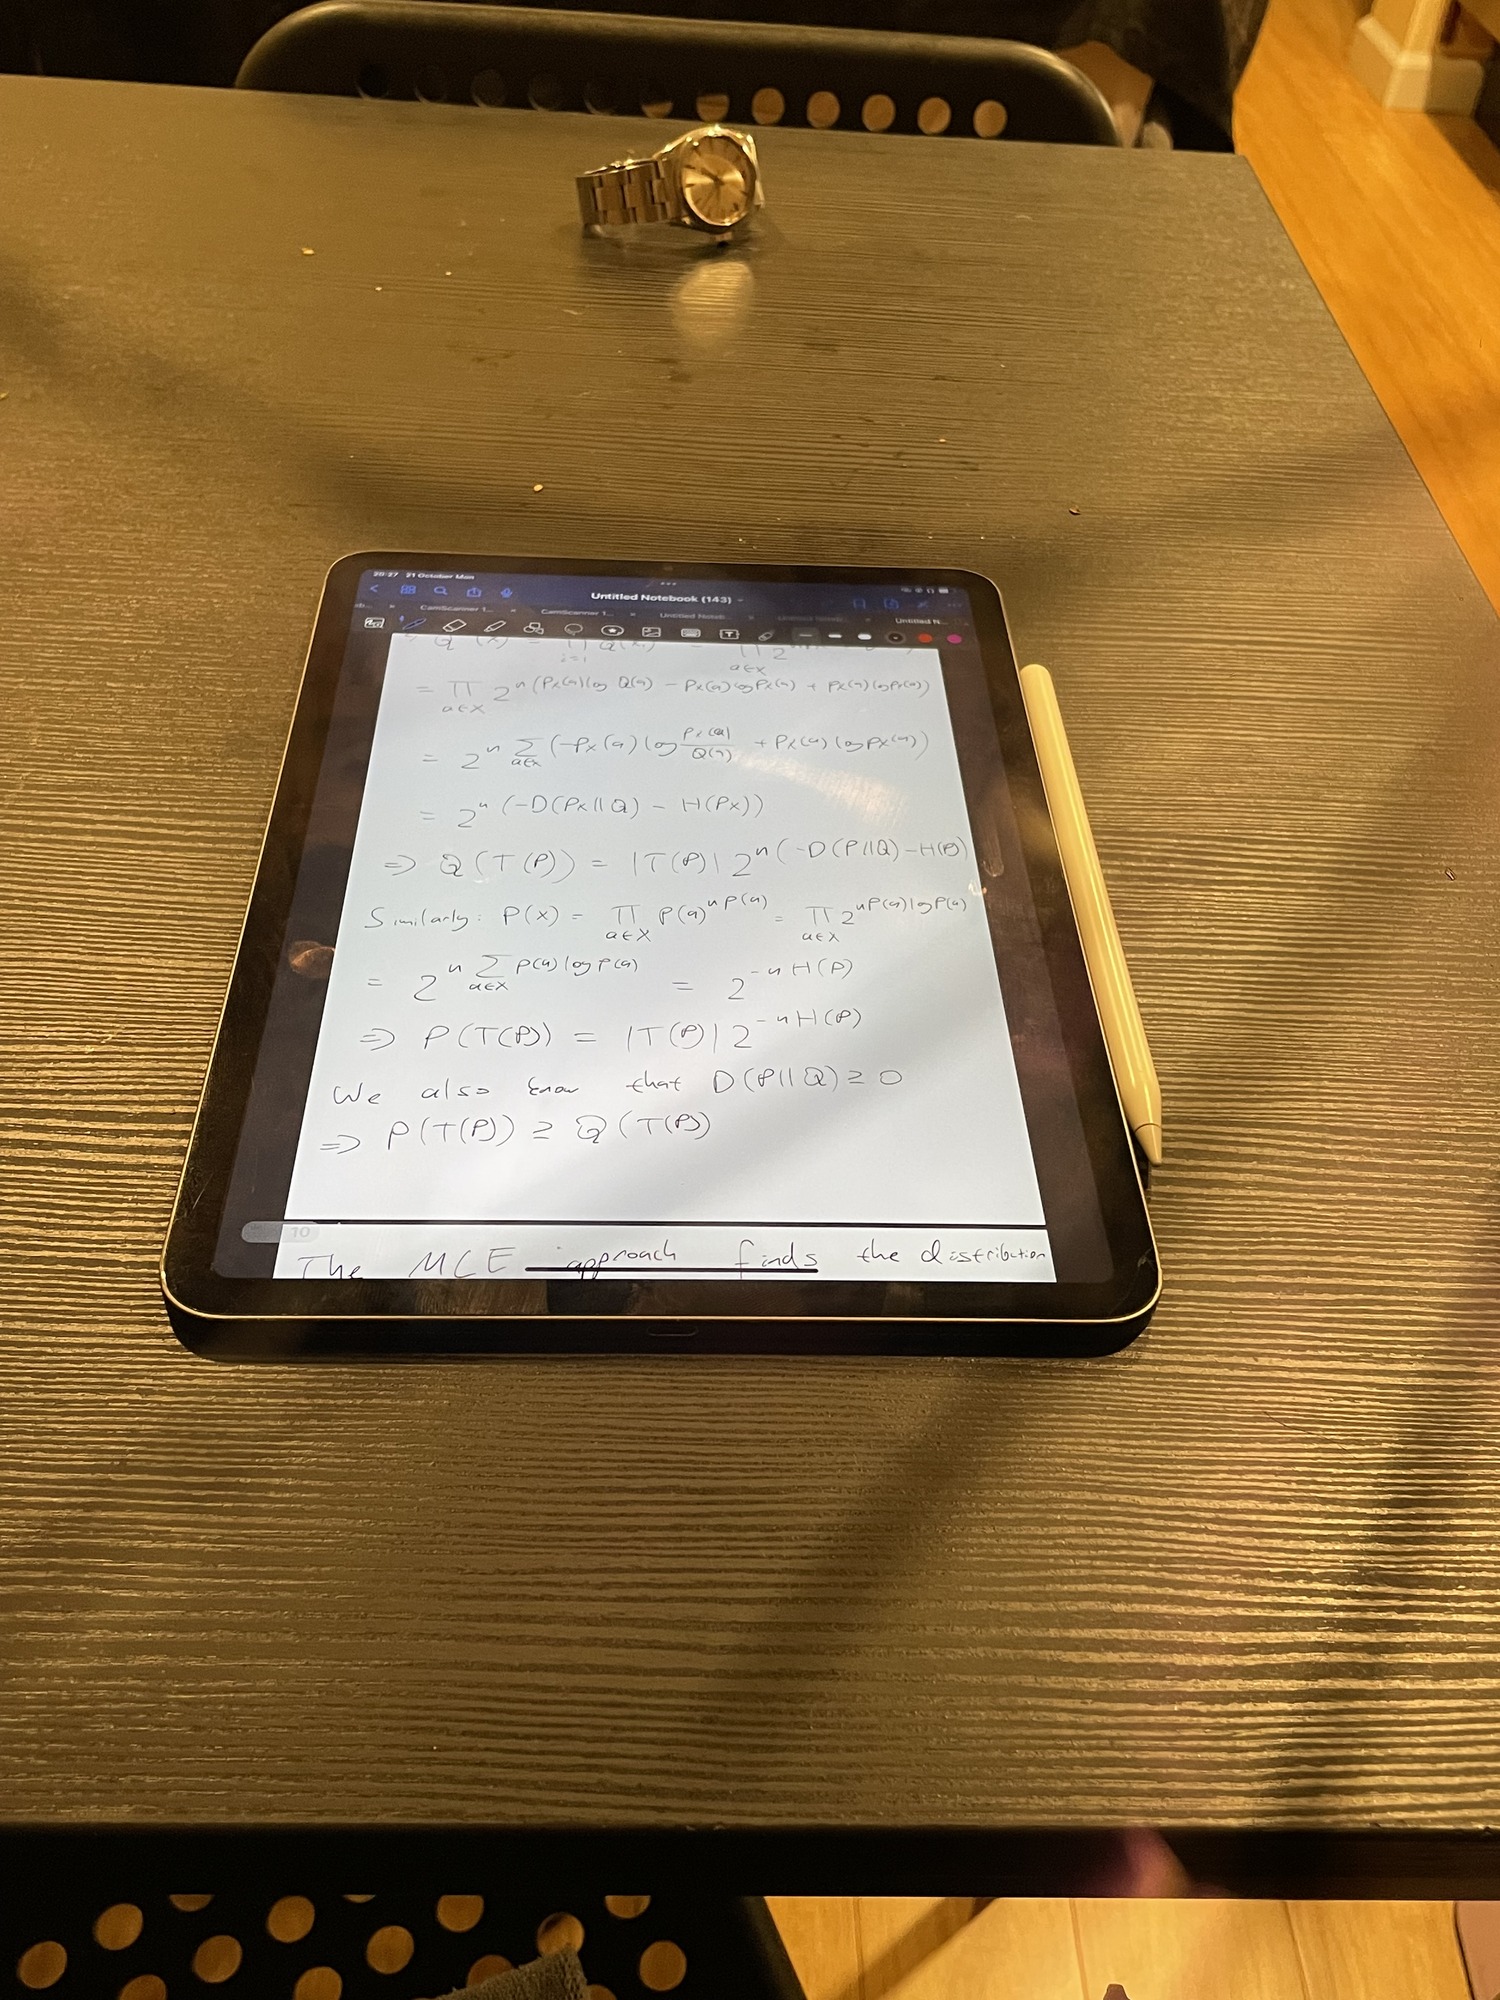 20:27 21 October Mon
Untitled Notebook (143)
CamScanner 1... CamScanner 1... Untitled Noteb... Untitled N...
= ∏_{a∈X} 2^{n(Px(a)log Q(a) - Px(a)logPx(a) + Px(a)logPx(a))}
= 2^{n Σ_{a∈X} (-Px(a) log Px(a)/Q(a) + Px(a) logPx(a))}
= 2^{n (-D(Px||Q) - H(Px))}
⇒ Q(T(P)) = |T(P)| 2^{n(-D(P||Q)-H(P))}
Similarly: P(x) = ∏_{a∈X} P(a)^{nP(a)} = ∏_{a∈X} 2^{nP(a)logP(a)}
= 2^{n Σ_{a∈X} P(a)logP(a)} = 2^{-nH(P)}
⇒ P(T(P)) = |T(P)| 2^{-nH(P)}
We also know that D(P||Q) ≥ 0
⇒ P(T(P)) ≥ Q(T(P))
10
The MLE approach finds the distribution